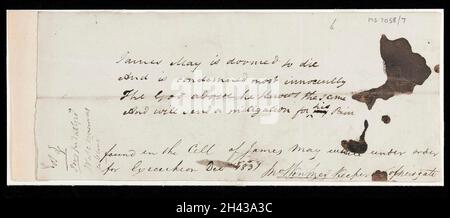 6
MS 7058/7
James May is doomed to die
And is condemned most innocently
The God above he knows the same
And will send a mitigation for his Pain
found in the Cell of James May while under order
for Execution Dec 1831 keeper of Newgate
alamy
Image ID: 2H43A3C
www.alamy.com